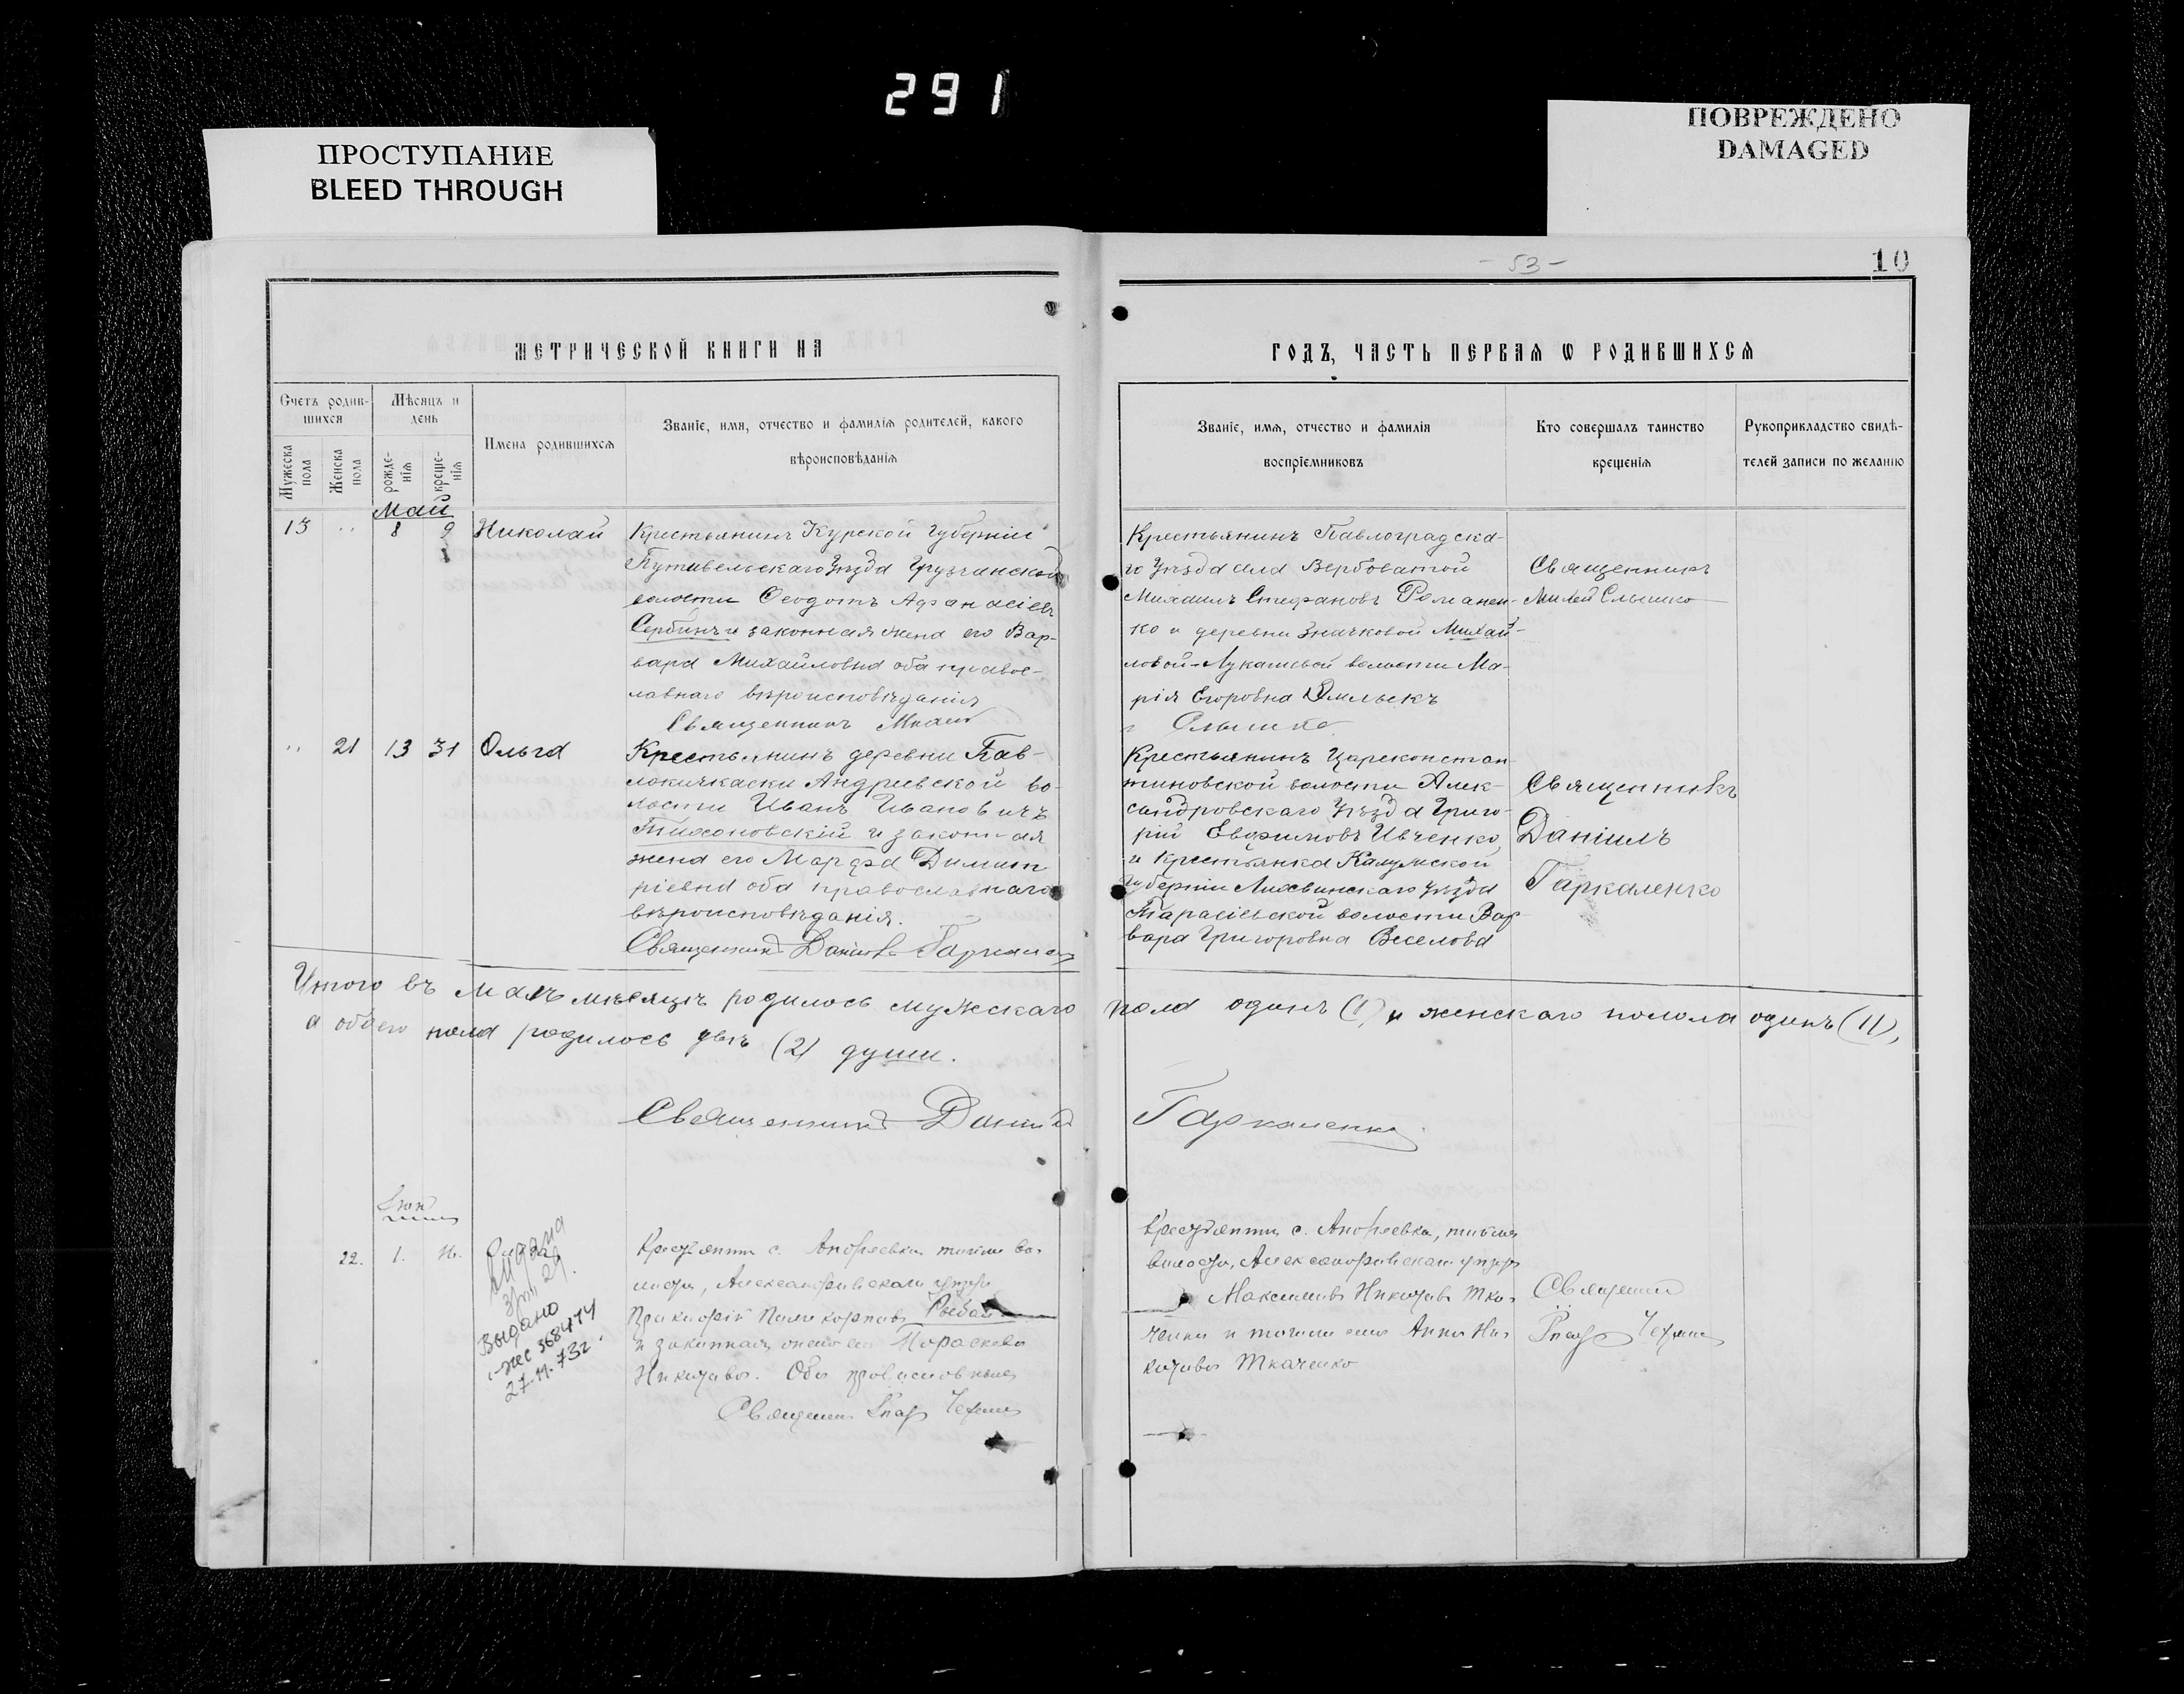 291
ПРОСТУПАНИЕ
BLEED THROUGH
ПОВРЕЖДЕНО
DAMAGED
- 53 -
10
МЕТРИЧЕСКОЙ КНИГИ НА
ГОДЪ, ЧАСТЬ ПЕРВАЯ Ѡ РОДИВШИХСЯ
Счетъ родив-
шихся
Мужеска пола
Женска пола
Мѣсяцъ и
день
рожде-
нія
креще-
нія
Имена родившихся
Званіе, имя, отчество и фамилія родителей, какого
вѣроисповѣданія
Званіе, имя, отчество и фамилія
воспріемниковъ
Кто совершалъ таинство
крещенія
Рукоприкладство свидѣ-
телей записи по желанію
Май
13 " 8 9 Николай
Крестьянинъ Курской губерніи
Путивельскаго уѣзда Грузчанской
волости Ѳеодотъ Афанасіевъ
Сербинъ и законная жена его Вар-
вара Михайловна оба правос-
лавнаго вѣроисповѣданія
Священникъ
Крестьянинъ Павлоградска-
го уѣзда села Вербоватой
Михаилъ Стефановъ Романен-
ко и деревни Значковой Михай-
ловой-Лукашевой волости Ма-
рія Егоровна
Слышко
Священникъ
Слышко
" 21 13 31 Ольга
Крестьянинъ деревни Пав-
локичкаски Андреевской во-
лости Иванъ Ивановичъ
Тихоновскій и законная
жена его Марфа Димит
ріевна оба православнаго
вѣроисповѣданія.
Священникъ Даніилъ
Крестьянинъ Цареконстан
тиновской волости Алек-
сандровскаго уѣзда Григо-
рій Евфимовъ Ивченко,
и крестьянка Калужской
губерніи Лихвинскаго уѣзда
волости Вар
вара Григоровна Веселова
Священникъ
Даніилъ
Гаркаленко
Итого въ маѣ мѣсяцѣ родилось мужскаго пола одинъ (1) и женскаго полола одинъ (1),
а обоего пола родилось двѣ (2) души.
Священникъ Даніилъ Гаркаленко
22. 1.
Выдано
568474
27.
Крестьянинъ с. Андреевки, той же во-
лости, Александровскаго уѣзда
Поликарповъ Рыбал
и законная жена его Параскева
Никитова. Оба православные
Священникъ
Крестьянинъ с. Андреевки, той же
волости, Александровскаго уѣзда
Максимъ Никитовъ Тка-
ченко и того же села Анна Ни-
китова Ткаченко
Священникъ